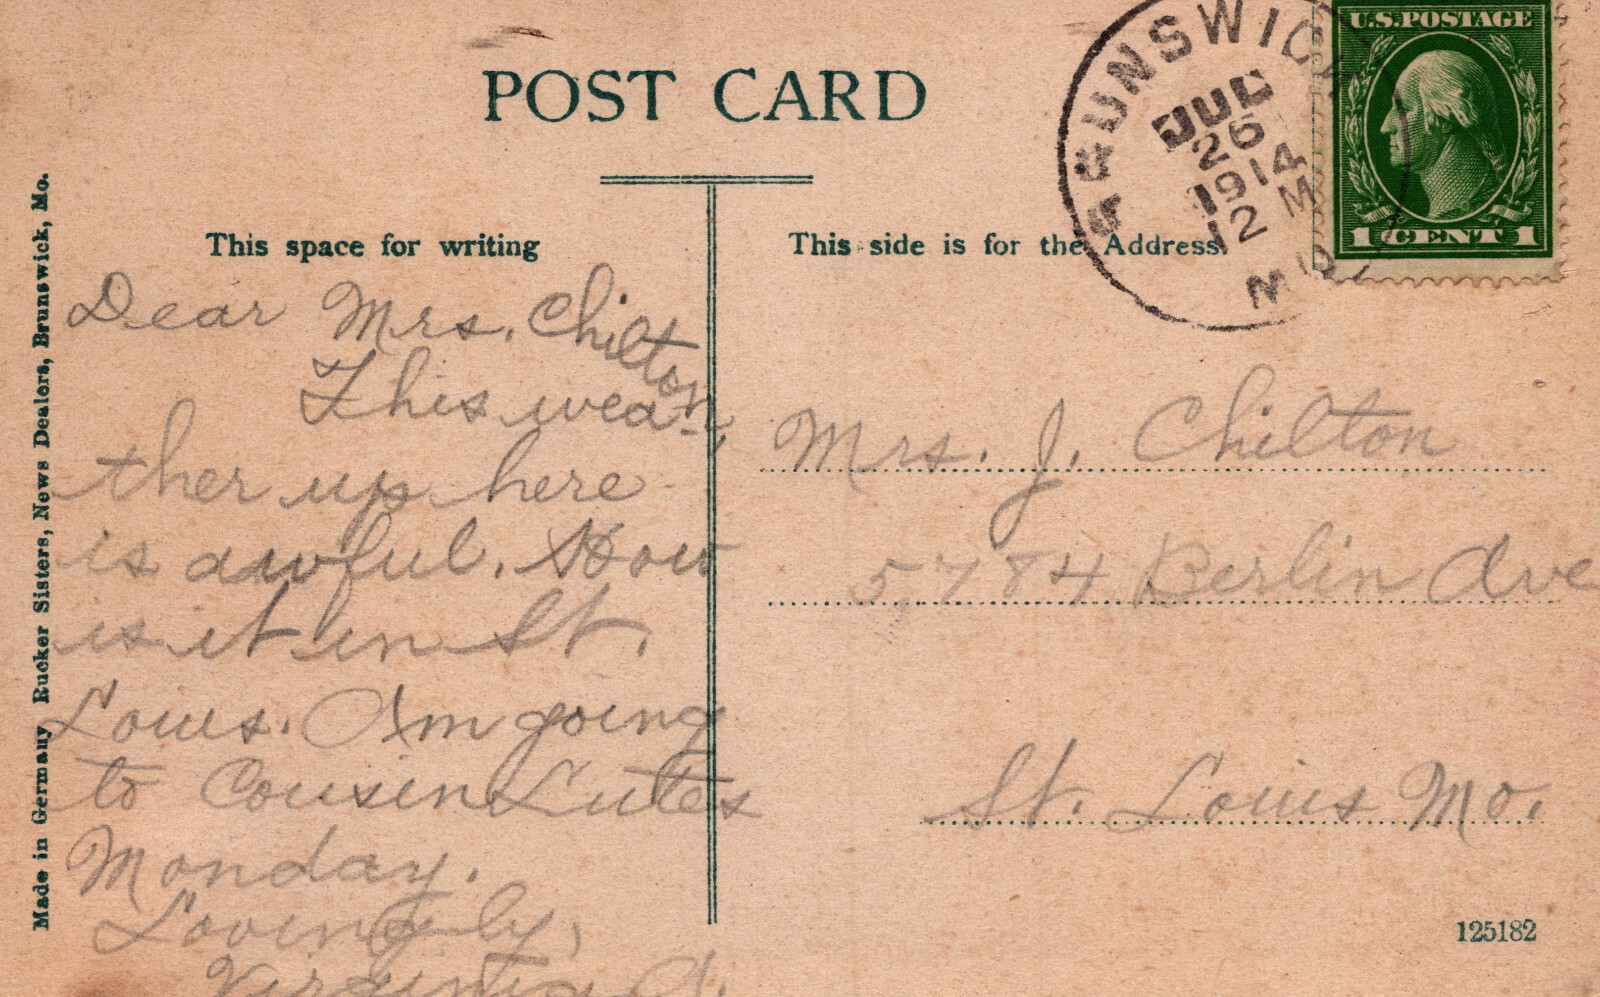 POST CARD
BRUNSWICK
JUL
26
1914
12 M
MO.
U.S. POSTAGE
1 CENT 1
This space for writing
This side is for the Address.
Dear Mrs. Chilton,
This wea-
ther up here
is awful. How
is it in St.
Louis. Am going
to Cousin Lute's
Monday.
Lovingly,
Virginia A.
Mrs. J. Chilton
5784 Berlin Ave
St. Louis Mo.
125182
Made in Germany Rucker Sisters, News Dealers, Brunswick, Mo.